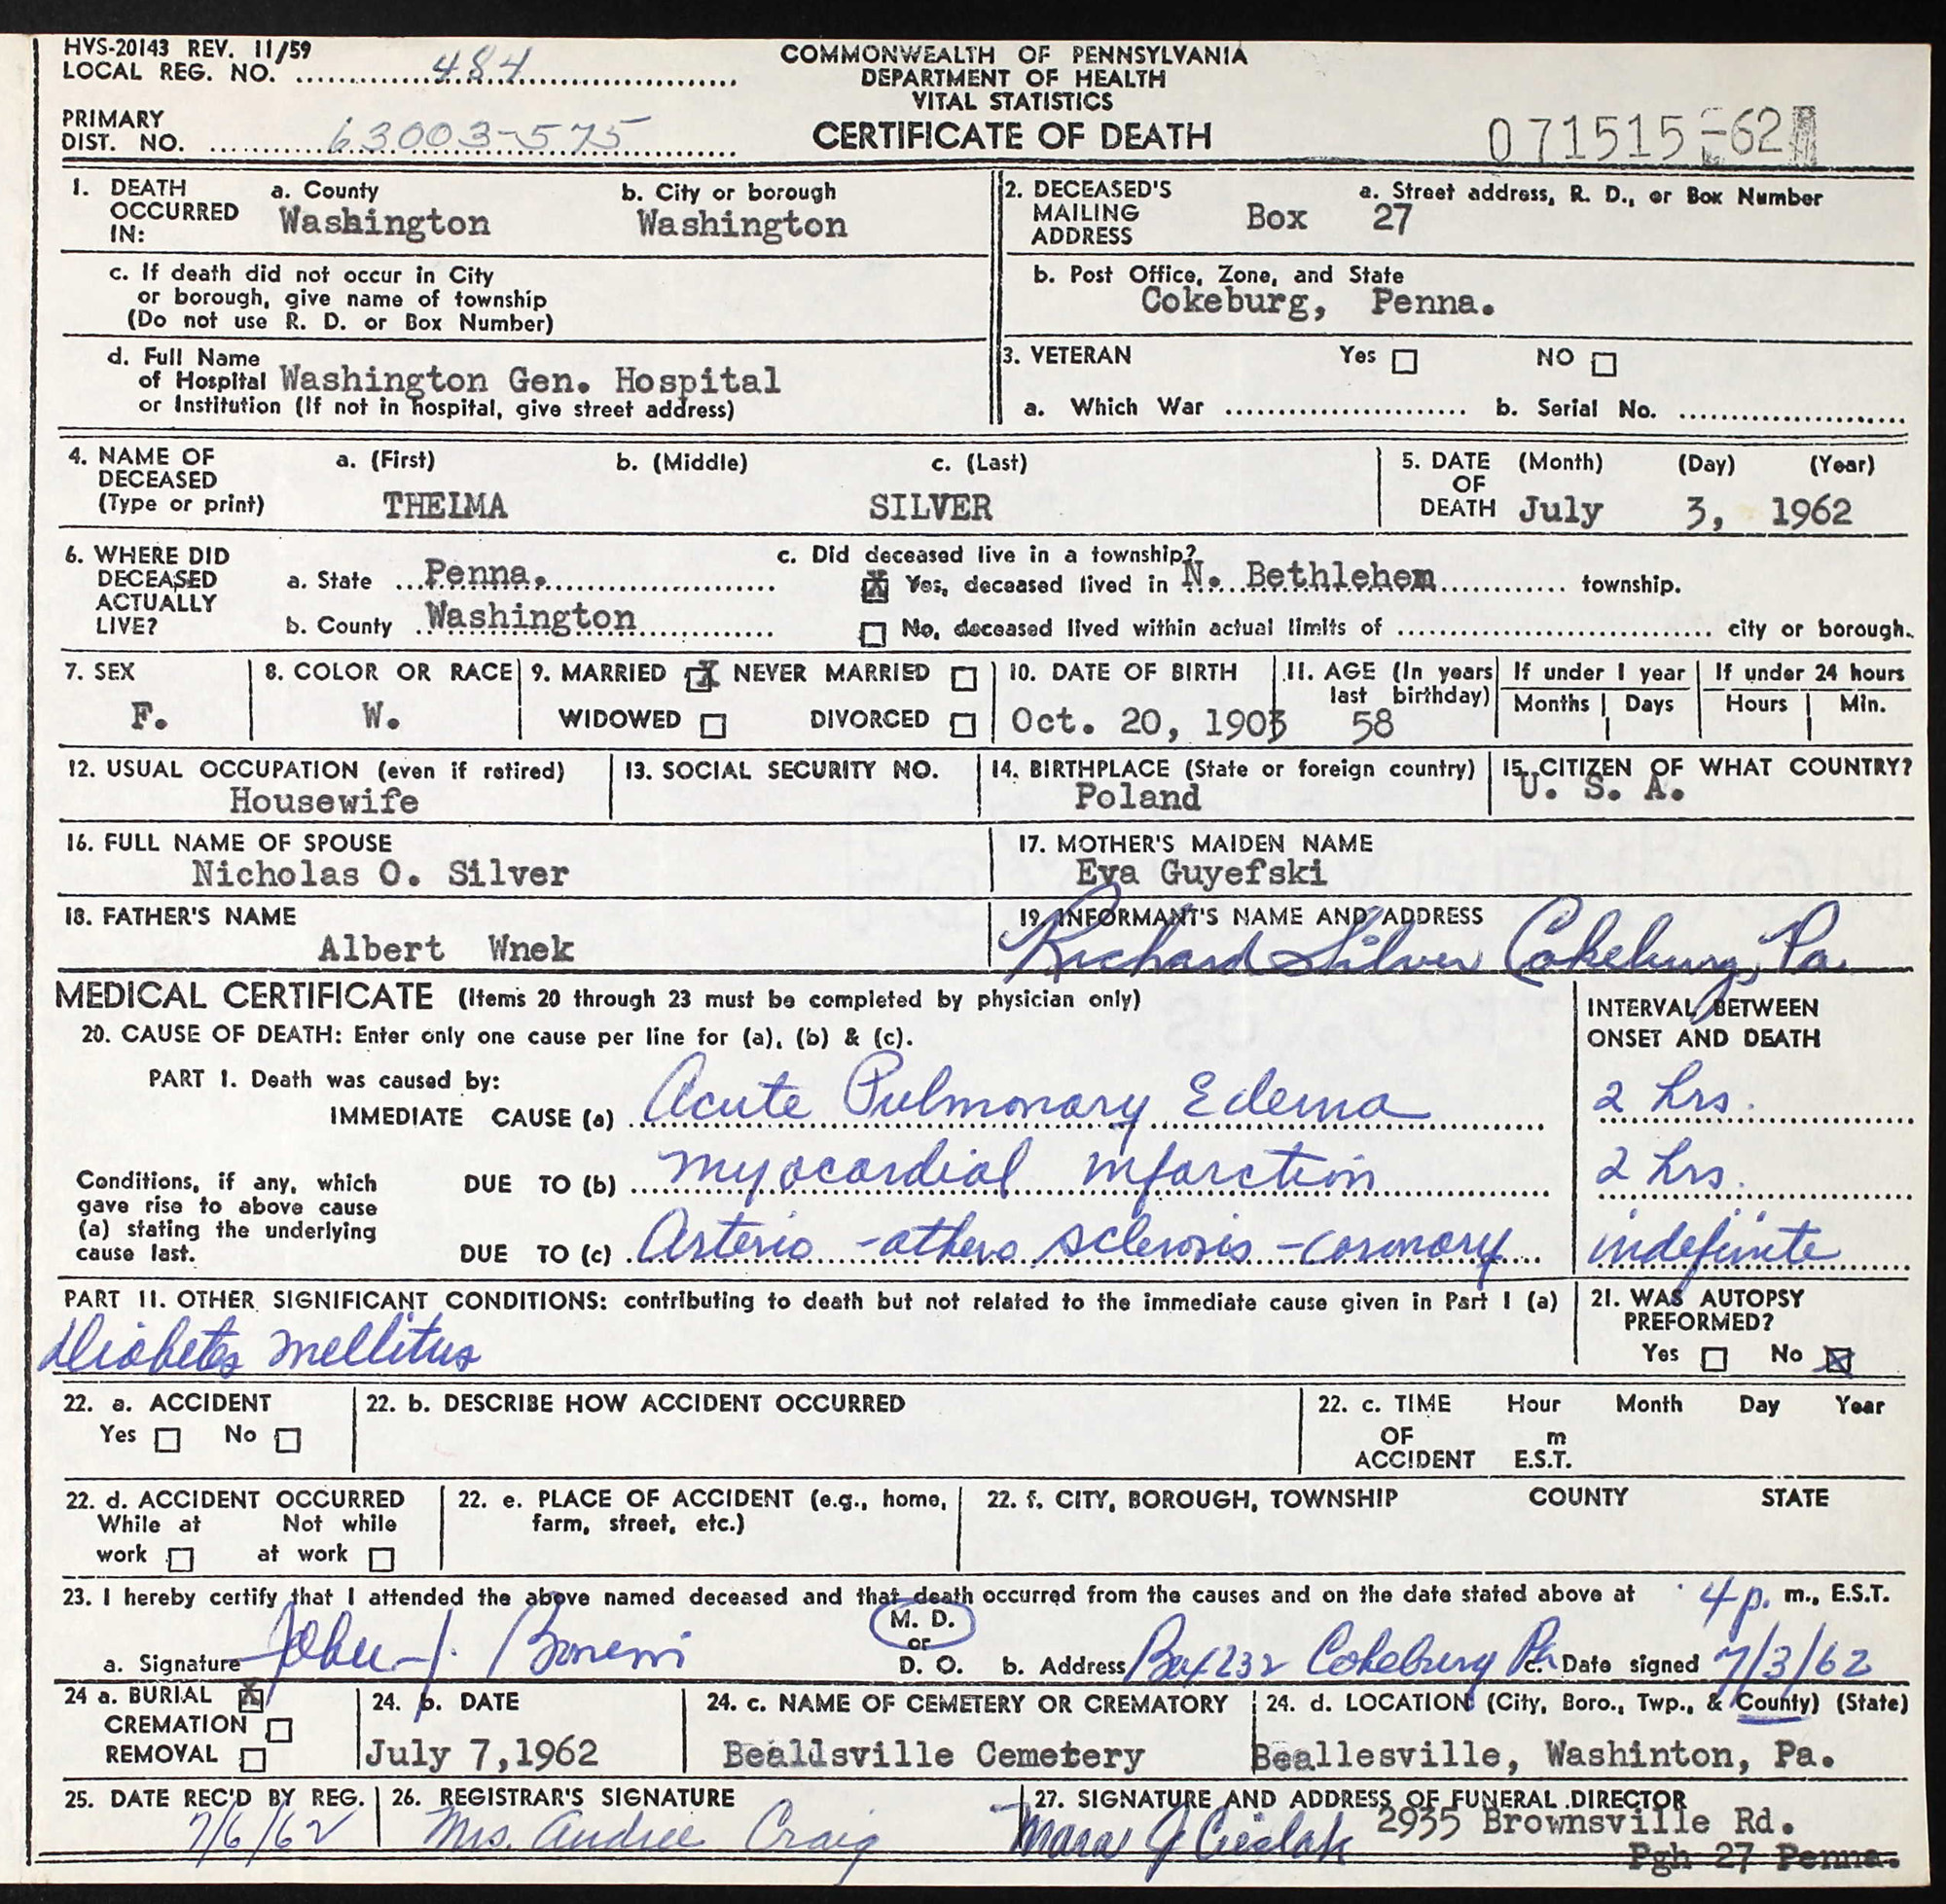 HVS-20143 REV. 11/59
LOCAL REG. NO. 484
COMMONWEALTH OF PENNSYLVANIA
DEPARTMENT OF HEALTH
VITAL STATISTICS
CERTIFICATE OF DEATH
PRIMARY
DIST. NO. 63003-575
071515-62
1. DEATH OCCURRED IN:
a. County
Washington
b. City or borough
Washington
2. DECEASED'S MAILING ADDRESS
a. Street address, R. D., or Box Number
Box 27
c. If death did not occur in City
or borough, give name of township
(Do not use R. D. or Box Number)
b. Post Office, Zone, and State
Cokeburg, Penna.
d. Full Name
of Hospital Washington Gen. Hospital
or Institution (If not in hospital, give street address)
3. VETERAN Yes NO
a. Which War b. Serial No.
4. NAME OF DECEASED (Type or print)
a. (First) b. (Middle) c. (Last)
THELMA SILVER
5. DATE OF DEATH (Month) (Day) (Year)
July 3, 1962
6. WHERE DID DECEASED ACTUALLY LIVE?
a. State Penna.
b. County Washington
c. Did deceased live in a township?
X Yes, deceased lived in N. Bethlehem township.
No, deceased lived within actual limits of city or borough.
7. SEX
F.
8. COLOR OR RACE
W.
9. MARRIED X NEVER MARRIED
WIDOWED DIVORCED
10. DATE OF BIRTH
Oct. 20, 1903
11. AGE (In years last birthday)
58
If under 1 year
Months Days
If under 24 hours
Hours Min.
12. USUAL OCCUPATION (even if retired)
Housewife
13. SOCIAL SECURITY NO.
14. BIRTHPLACE (State or foreign country)
Poland
15. CITIZEN OF WHAT COUNTRY?
U. S. A.
16. FULL NAME OF SPOUSE
Nicholas O. Silver
17. MOTHER'S MAIDEN NAME
Eva Guyefski
18. FATHER'S NAME
Albert Wnek
19. INFORMANT'S NAME AND ADDRESS
Richard Silver Cokeburg, Pa.
MEDICAL CERTIFICATE (Items 20 through 23 must be completed by physician only)
INTERVAL BETWEEN
ONSET AND DEATH
20. CAUSE OF DEATH: Enter only one cause per line for (a), (b) & (c).
PART I. Death was caused by:
IMMEDIATE CAUSE (a) Acute Pulmonary Edema 2 hrs.
Conditions, if any, which
gave rise to above cause
(a) stating the underlying
cause last.
DUE TO (b) myocardial infarction 2 hrs.
DUE TO (c) Arterio-athero sclerosis-coronary indefinite
PART II. OTHER SIGNIFICANT CONDITIONS: contributing to death but not related to the immediate cause given in Part I (a)
Diabetes mellitus
21. WAS AUTOPSY
PREFORMED?
Yes No X
22. a. ACCIDENT
Yes No
22. b. DESCRIBE HOW ACCIDENT OCCURRED
22. c. TIME OF ACCIDENT Hour Month Day Year
m
E.S.T.
22. d. ACCIDENT OCCURRED
While at work Not while at work
22. e. PLACE OF ACCIDENT (e.g., home,
farm, street, etc.)
22. f. CITY, BOROUGH, TOWNSHIP COUNTY STATE
23. I hereby certify that I attended the above named deceased and that death occurred from the causes and on the date stated above at 4 p. m., E.S.T.
a. Signature John J.
M. D.
or
D. O.
b. Address Box 232 Cokeburg Pa c. Date signed 7/3/62
24 a. BURIAL X
CREMATION
REMOVAL
24. b. DATE
July 7,1962
24. c. NAME OF CEMETERY OR CREMATORY
Beallsville Cemetery
24. d. LOCATION (City, Boro., Twp., & County) (State)
Beallesville, Washinton, Pa.
25. DATE REC'D BY REG.
7/6/62
26. REGISTRAR'S SIGNATURE
Mrs. Andree Craig
27. SIGNATURE AND ADDRESS OF FUNERAL DIRECTOR
2935 Brownsville Rd.
Pgh 27 Penna.